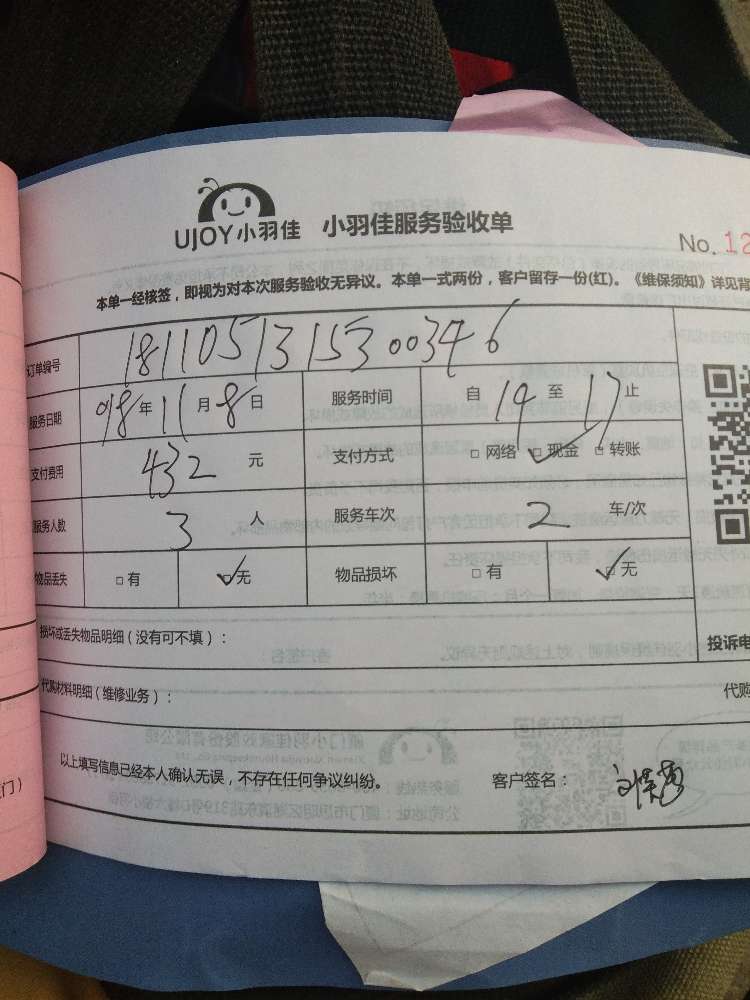 UJOY小羽佳 小羽佳服务验收单
No. 12
本单一经核签，即视为对本次服务验收无异议。本单一式两份，客户留存一份(红)。《维保须知》详见背
订单编号 1811051315300346
服务日期 018年11月8日 服务时间 自19至17止
支付费用 432元 支付方式 □网络 ☑现金 □转账
服务人数 3人 服务车次 2车/次
物品丢失 □有 ☑无 物品损坏 □有 ☑无
损坏或丢失物品明细（没有可不填）：
投诉电
代购材料明细（维修业务）：
代购
以上填写信息已经本人确认无误，不存在任何争议纠纷。 客户签名：
门）